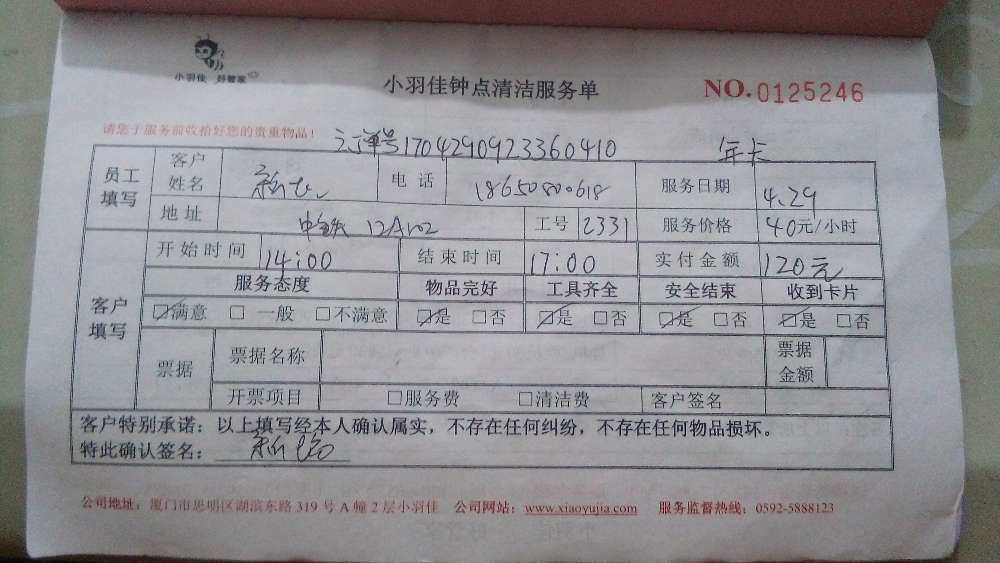 小羽佳 好管家
小羽佳钟点清洁服务单
NO.0125246
请您于服务前收拾好您的贵重物品!
订单号1704290923360410 年卡
员工填写 客户姓名 电话 18650800618 服务日期 4.29
地址 12A102 工号 2331 服务价格 40元/小时
客户填写 开始时间 14:00 结束时间 17:00 实付金额 120元
服务态度 物品完好 工具齐全 安全结束 收到卡片
☑满意 □一般 □不满意 ☑是 □否 ☑是 □否 ☑是 □否 ☑是 □否
票据 票据名称 票据金额
开票项目 □服务费 □清洁费 客户签名
客户特别承诺:以上填写经本人确认属实,不存在任何纠纷,不存在任何物品损坏。
特此确认签名:
公司地址:厦门市思明区湖滨东路 319 号 A 幢 2 层小羽佳 公司网站:www.xiaoyujia.com 服务监督热线:0592-5888123